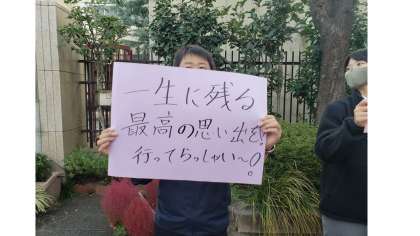 一生に残る
最高の思い出を!
行ってらっしゃい〜!